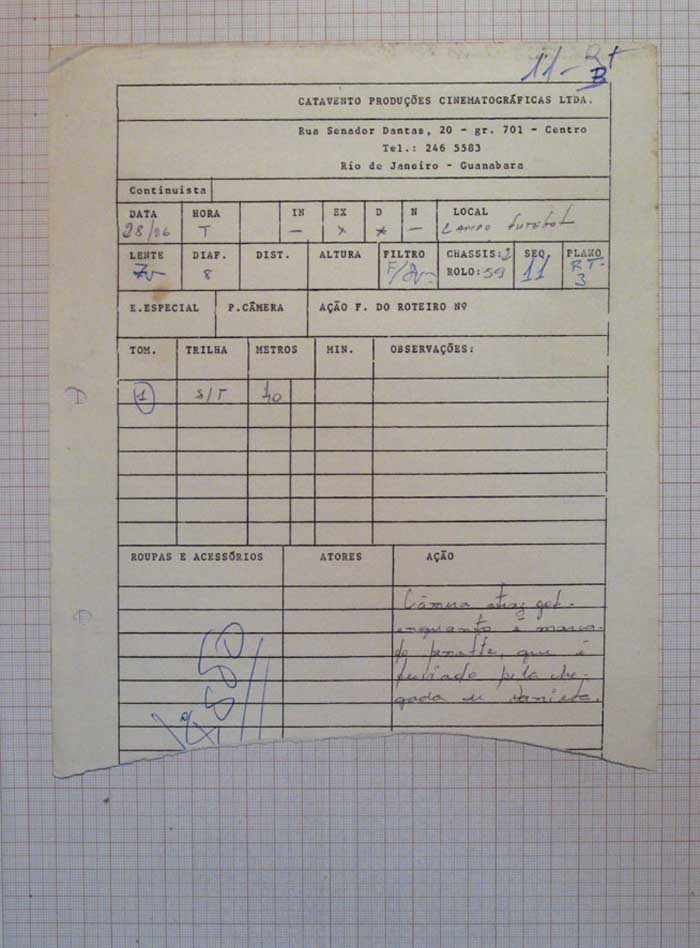 11 - RT
B
CATAVENTO PRODUÇÕES CINEMATOGRÁFICAS LTDA.
Rua Senador Dantas, 20 - gr. 701 - Centro
Tel.: 246 5583
Rio de Janeiro - Guanabara
Continuista
DATA HORA IN EX D N LOCAL
28/06 T - x x - Campo futebol
LENTE DIAF. DIST. ALTURA FILTRO CHASSIS: 2 SEQ. PLANO
8 ROLO: 59 11 RT-
3
E.ESPECIAL P.CÂMERA AÇÃO F. DO ROTEIRO Nº
TOM. TRILHA METROS MIN. OBSERVAÇÕES:
1 S/T 40
ROUPAS E ACESSÓRIOS ATORES AÇÃO
Câmera atraz gol.
enquanto é marca-
do penalte, que é
pela che-
gada